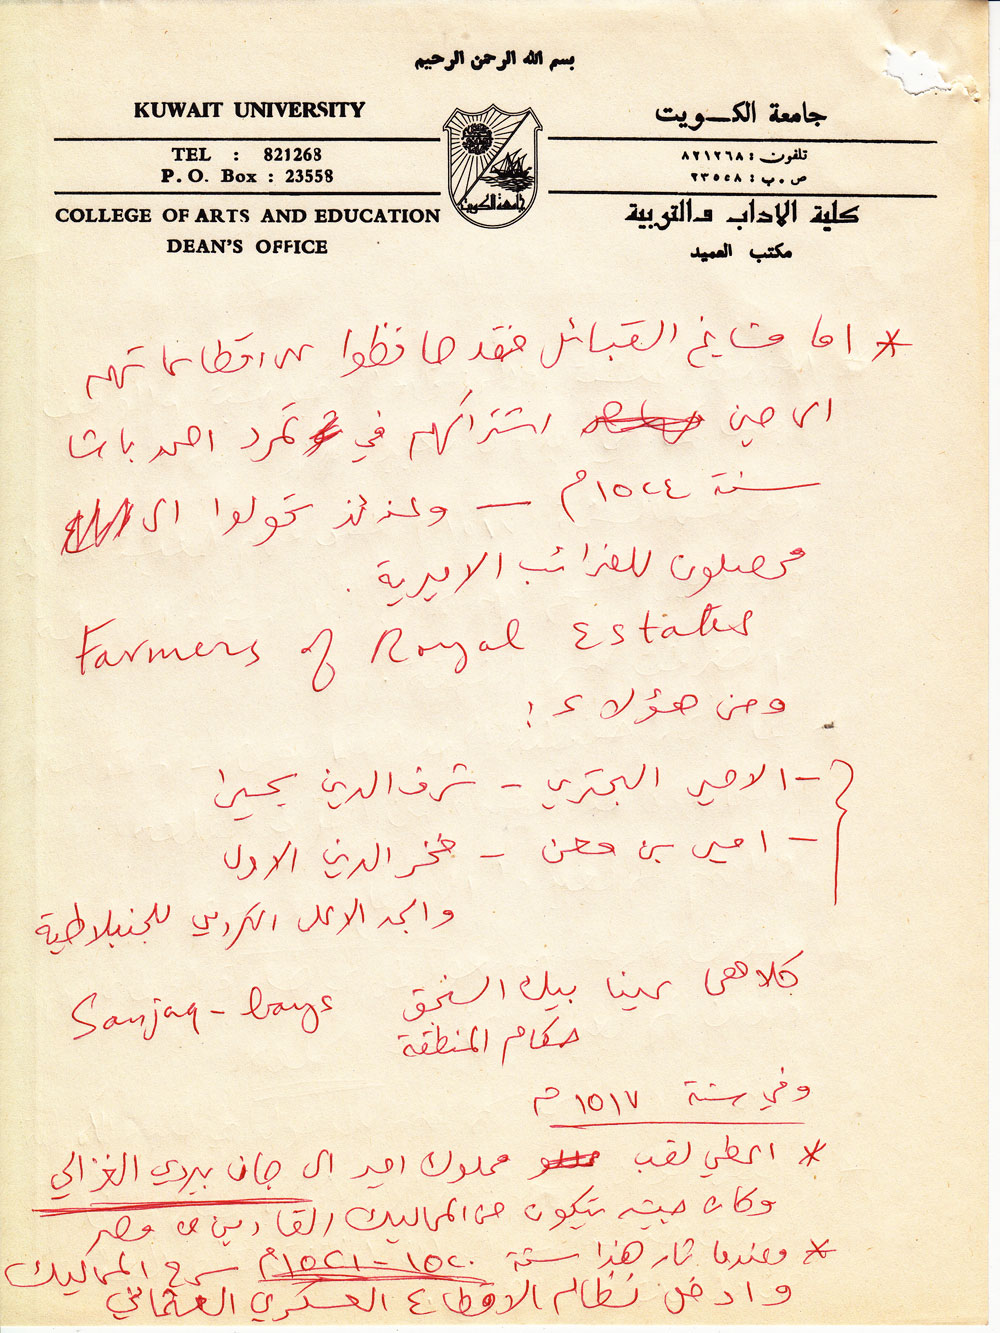 بسم الله الرحمن الرحيم
KUWAIT UNIVERSITY
جامعة الكويت
TEL : 821268
P. O. Box : 23558
تلفون : ٨٢١٢٦٨
ص . ب : ٢٣٥٥٨
جامعة الكويت
COLLEGE OF ARTS AND EDUCATION
DEAN'S OFFICE
كلية الاداب والتربية
مكتب العميد
* اما مشايخ القبائل فقد حافظوا على اقطاعاتهم
الى حين اشتراكهم في تمرد احمد باشا
سنة ١٥٢٤م — وعندئذ تحولوا الى
محصلون للضرائب الاميرية .
Farmers of Royal Estates
ومن هؤلاء :
- الامير البحتري - شرف الدين يحيى
- امير بن معن - فخر الدين الاول
والجد الاعلى الكردي للجنبلاطية
كلاهما عينا بيك السنجق Sanjaq-bays
حكام المنطقة
وفي سنة ١٥١٧م
* اعطي لقب مملوك امير الى جان بردي الغزالي
وكان جيشه يتكون من المماليك القادمين من مصر
* وعندما ثار هذا سنة ١٥٢٠-١٥٢١م سرح المماليك
وادخل نظام الاقطاع العسكري العثماني